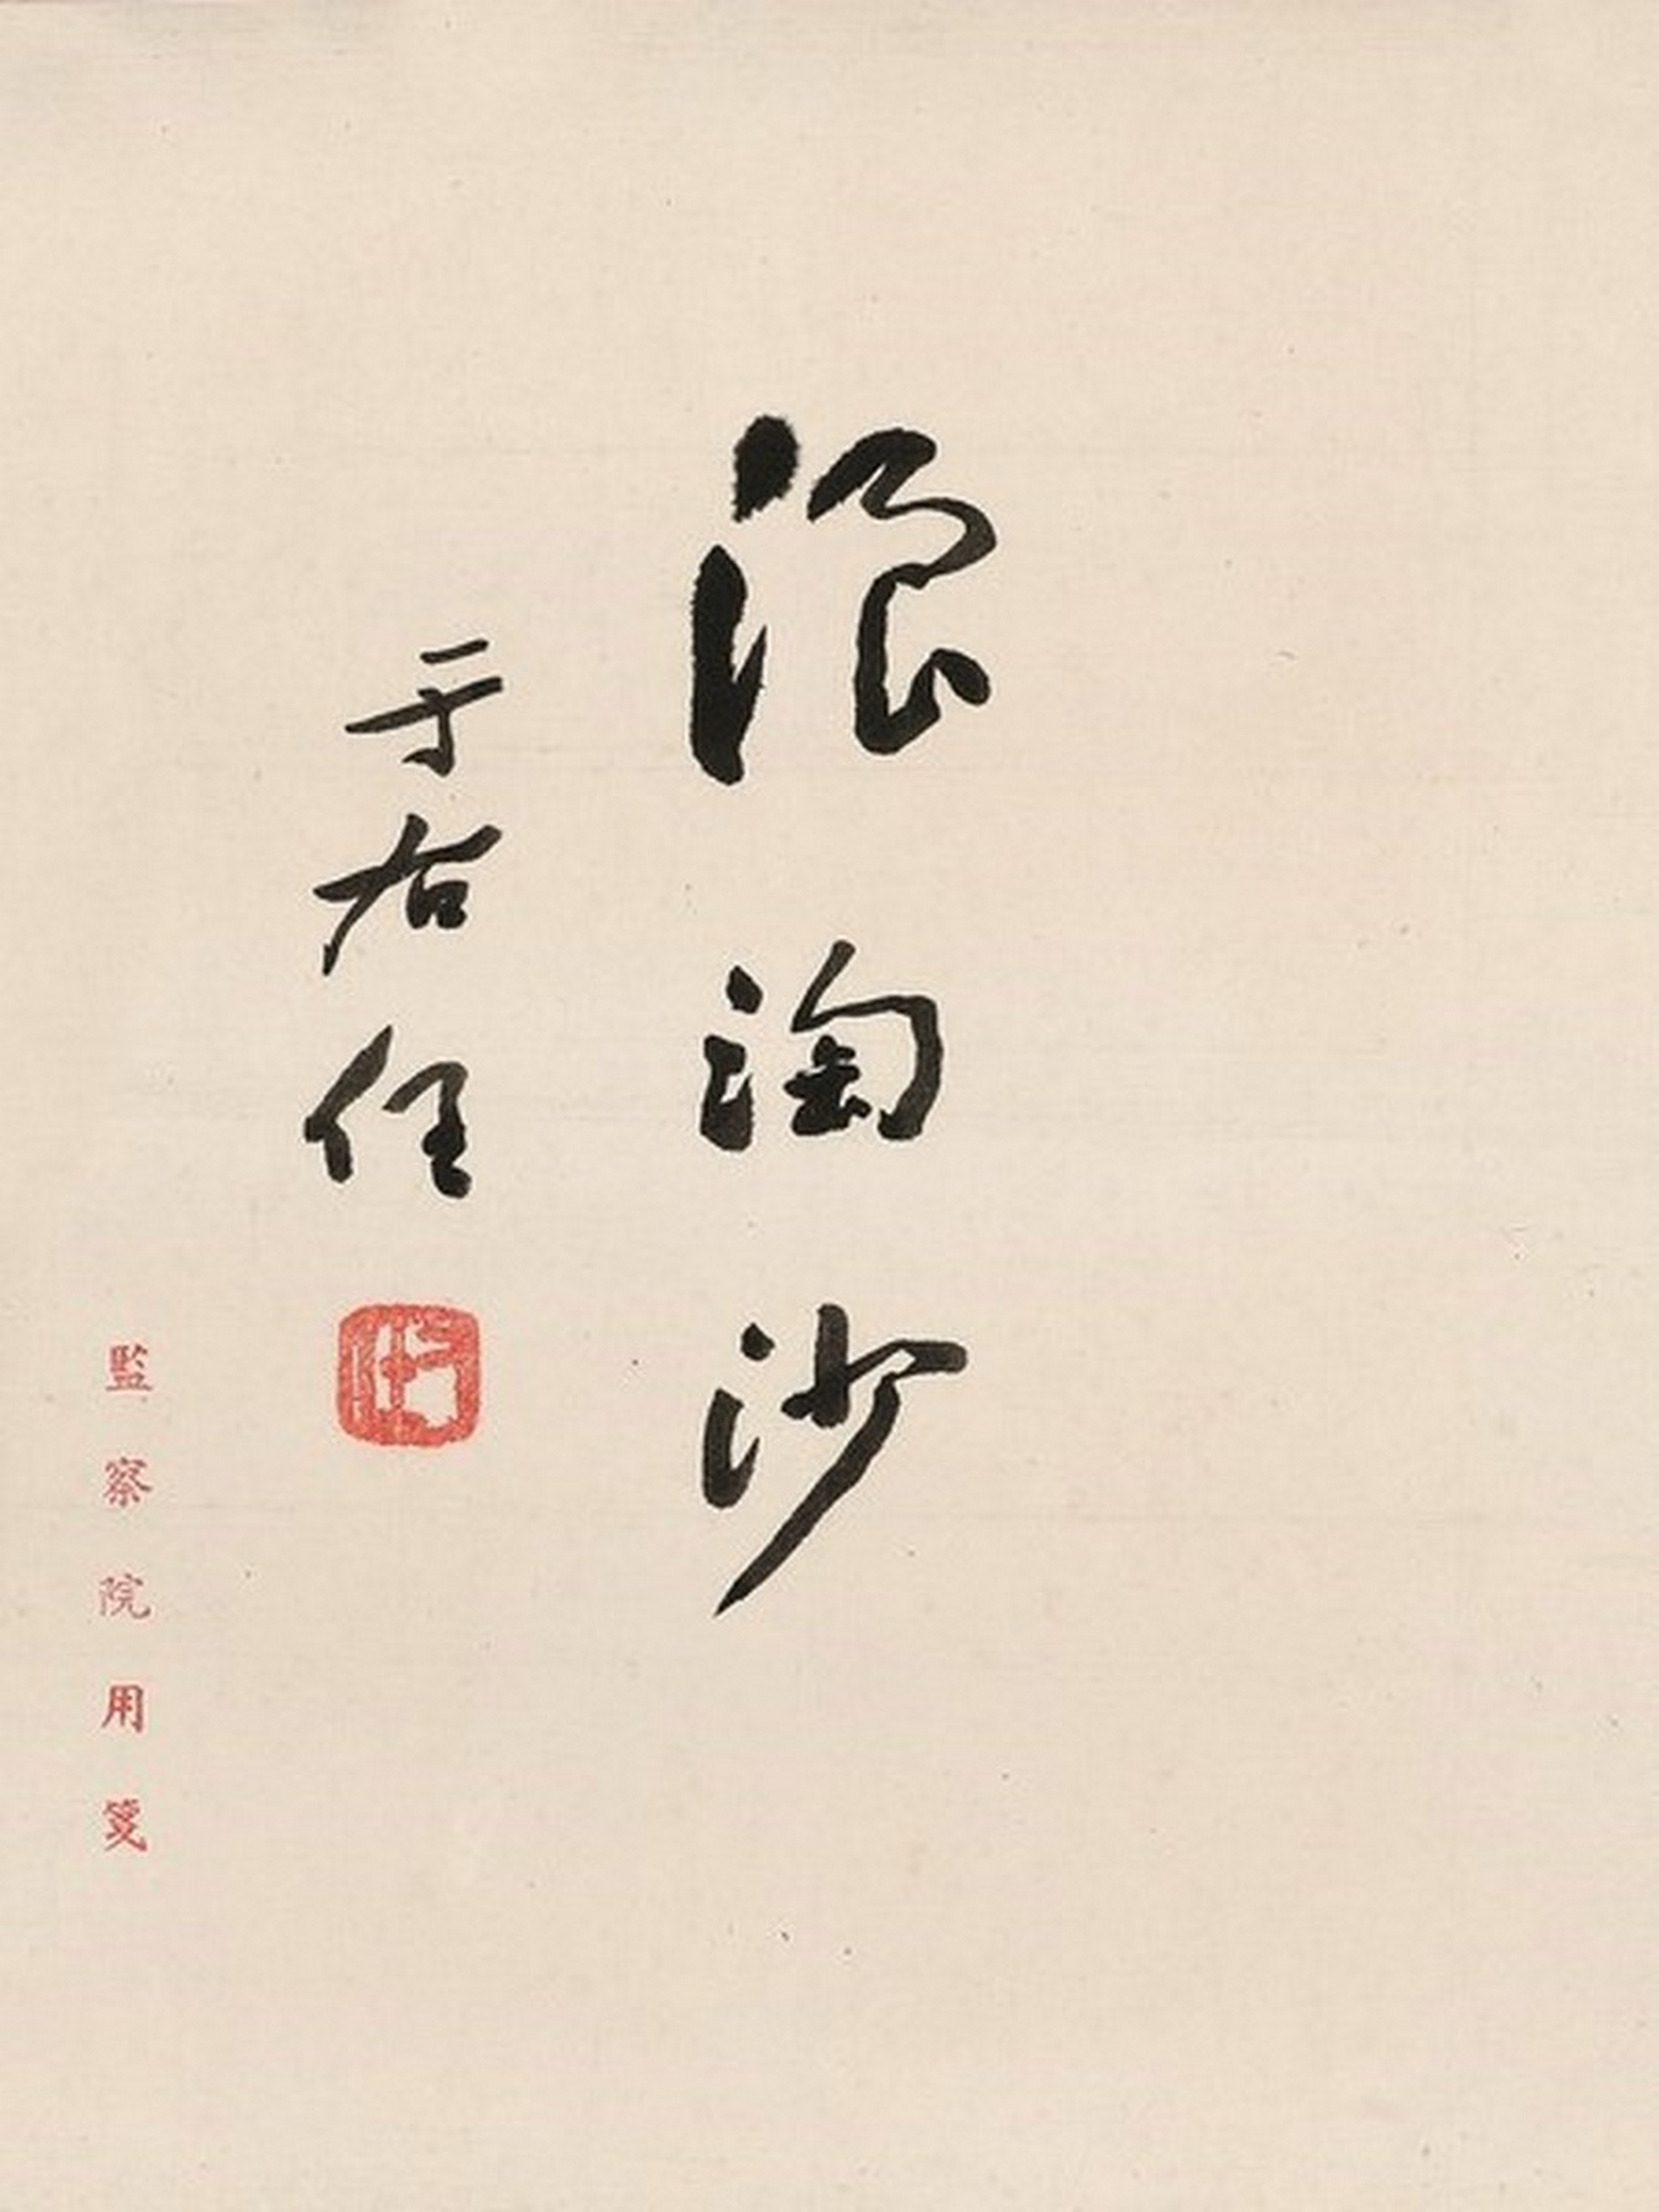 浪淘沙
于右任
右任
監察院用箋